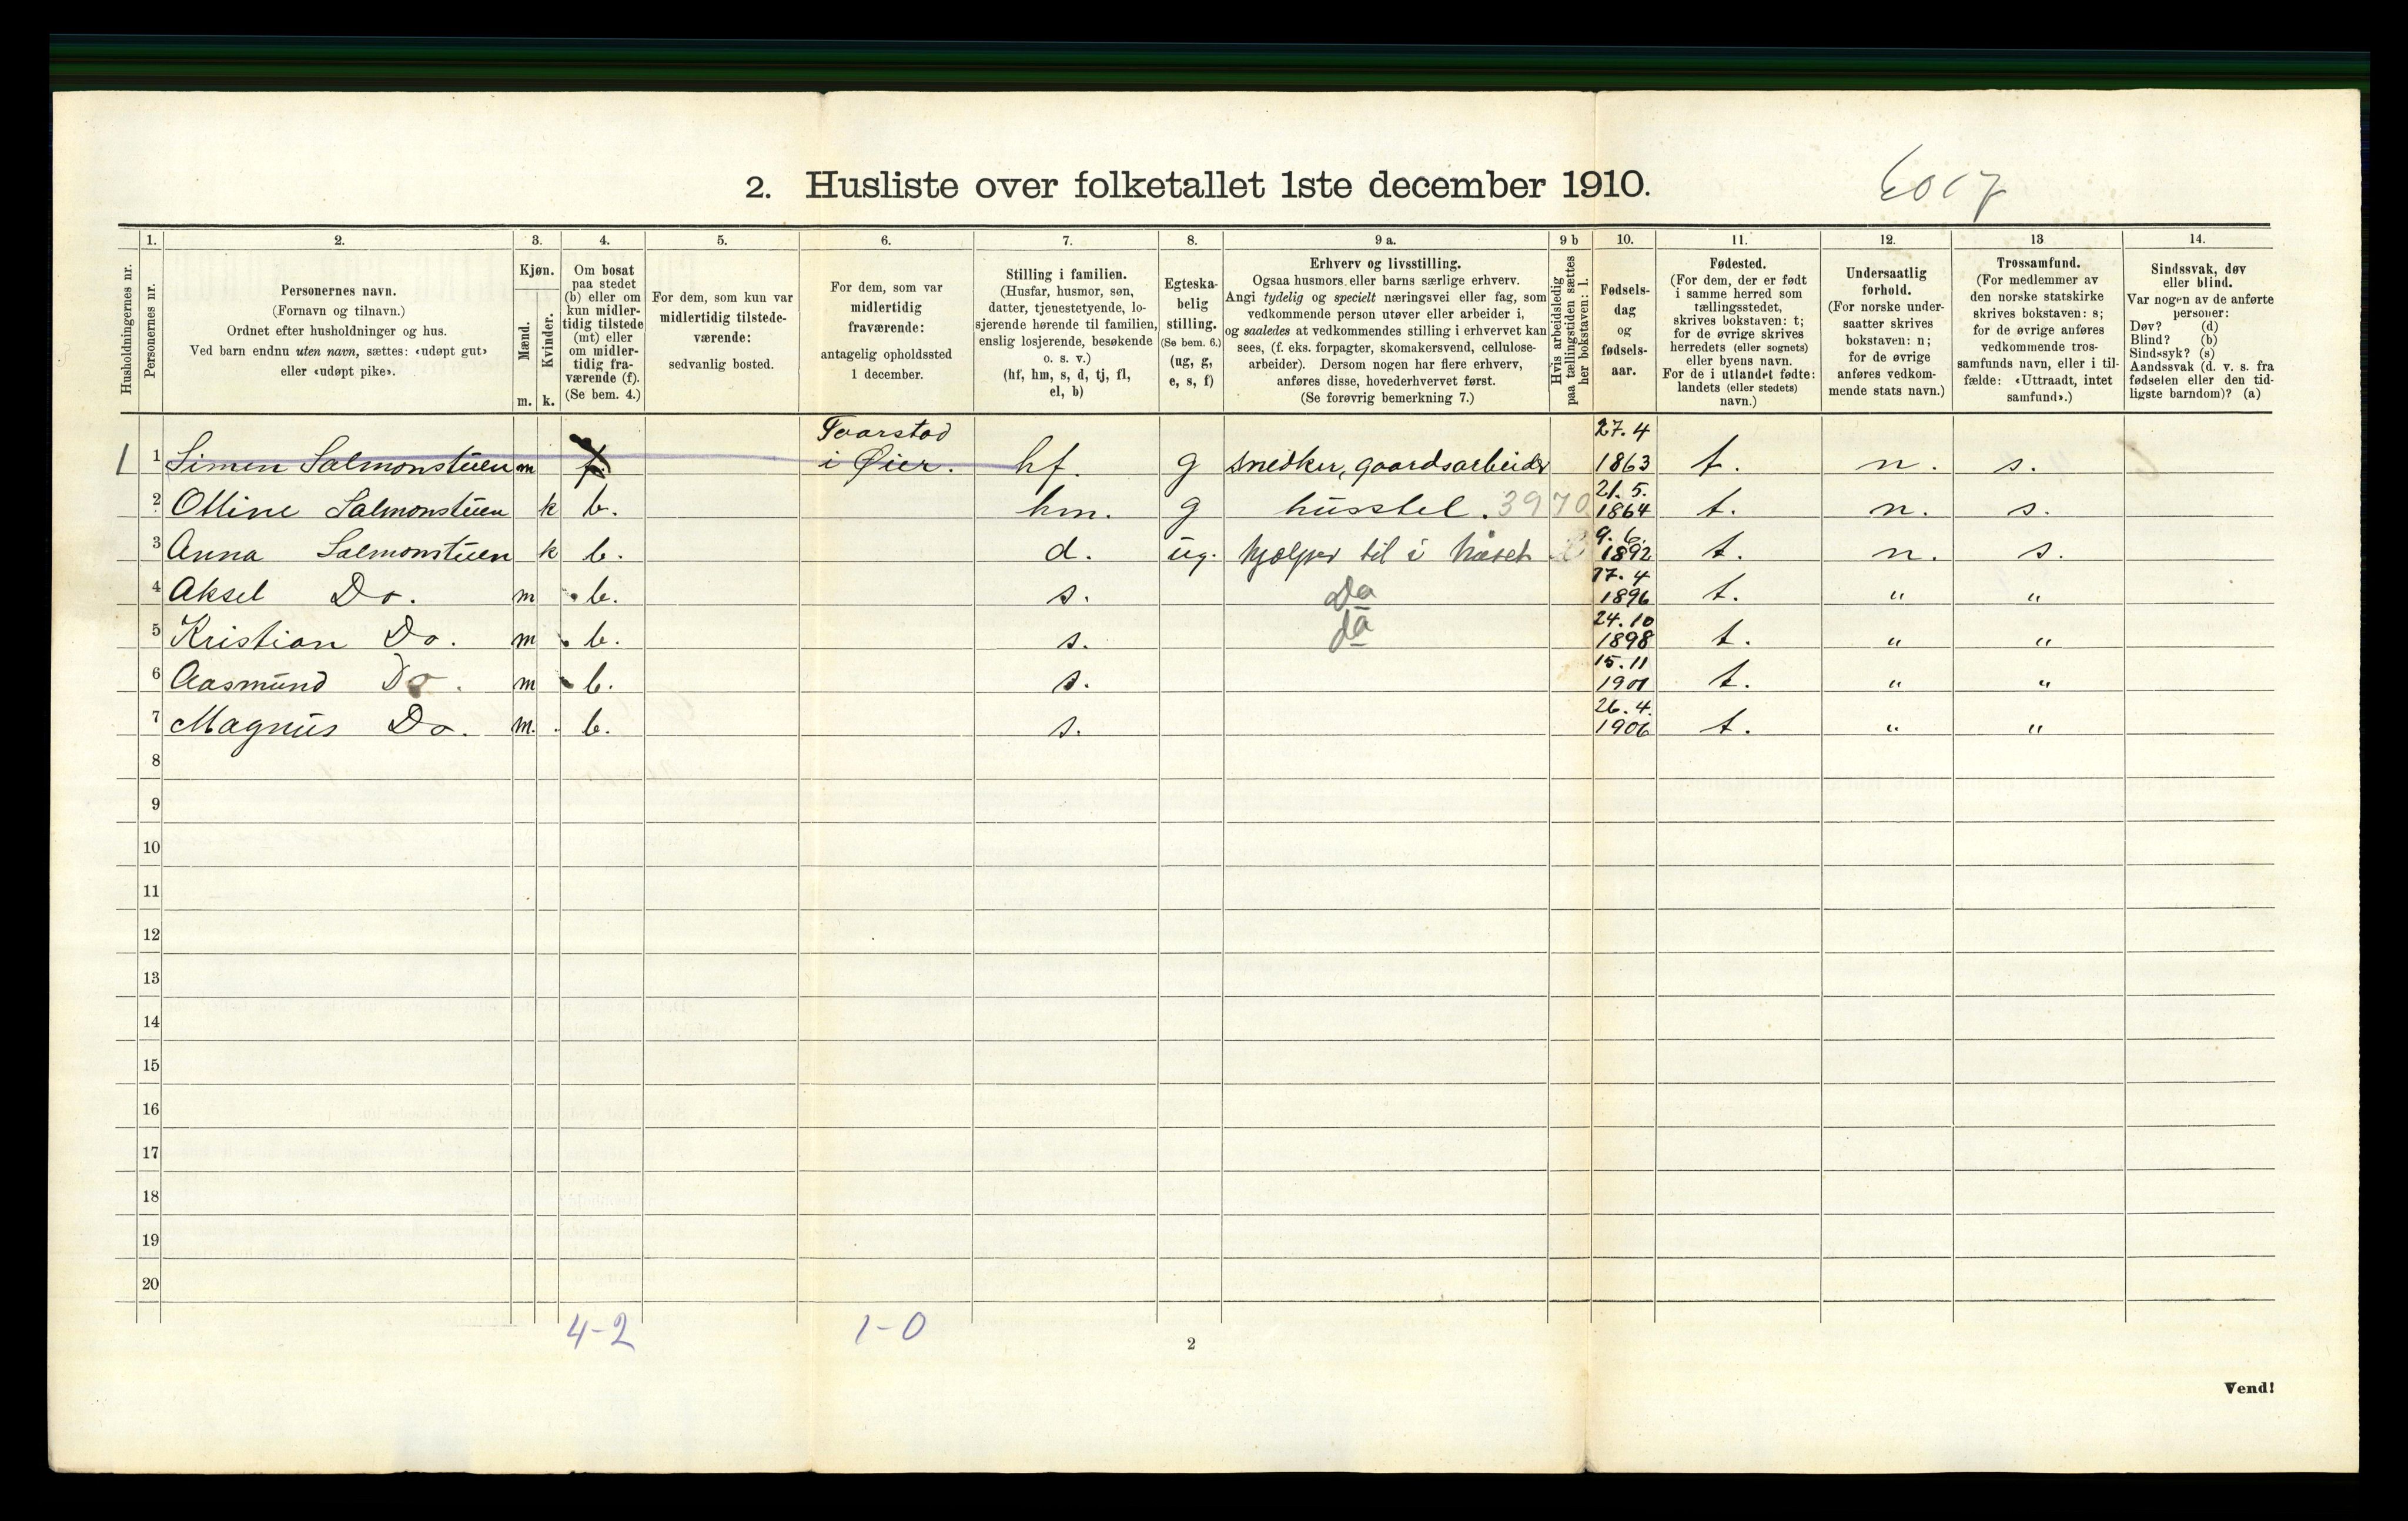 2. Husliste over folketallet 1ste december 1910.
1. 2. 3. 4. 5. 6. 7. 8. 9 a. 9 b 10. 11. 12. 13 14.
Husholdningernes nr.
Personernes nr.
Personernes navn.
(Fornavn og tilnavn.)
Ordnet efter husholdninger og hus.
Ved barn endnu uten navn, sættes: «udøpt gut»
eller «udøpt pike».
Kjøn.
Mænd.
Kvinder.
m. k.
Om bosat
paa stedet
(b) eller om
kun midler-
tidig tilstede
(mt) eller
om midler-
tidig fra-
værende (f).
(Se bem. 4.)
For dem, som kun var
midlertidig tilstede-
værende:
sedvanlig bosted.
For dem, som var
midlertidig
fraværende:
antagelig opholdssted
1 december.
Stilling i familien.
(Husfar, husmor, søn,
datter, tjenestetyende, lo-
sjerende hørende til familien,
enslig losjerende, besøkende
o. s. v.)
(hf, hm, s, d, tj, fl,
el, b)
Egteska-
belig
stilling.
(Se bem. 6.)
(ug, g,
e, s, f)
Erhverv og livsstilling.
Ogsaa husmors eller barns særlige erhverv.
Angi tydelig og specielt næringsvei eller fag, som
vedkommende person utøver eller arbeider i,
og saaledes at vedkommendes stilling i erhvervet kan
sees, (f. eks. forpagter, skomakersvend, cellulose-
arbeider). Dersom nogen har flere erhverv,
anføres disse, hovederhvervet først.
(Se forøvrig bemerkning 7.)
Hvis arbeidsledig
paa tællingstiden sættes
her bokstaven: l.
Fødsels-
dag
og
fødsels-
aar.
Fødested.
(For dem, der er født
i samme herred som
tællingsstedet,
skrives bokstaven: t;
for de øvrige skrives
herredets (eller sognets)
eller byens navn.
For de i utlandet fødte:
landets (eller stedets)
navn.)
Undersaatlig
forhold.
(For norske under-
saatter skrives
bokstaven: n;
for de øvrige
anføres vedkom-
mende stats navn.)
Trossamfund.
(For medlemmer av
den norske statskirke
skrives bokstaven: s;
for de øvrige anføres
vedkommende tros-
samfunds navn, eller i til-
fælde: «Uttraadt, intet
samfund».)
Sindssvak, døv
eller blind.
Var nogen av de anførte
personer:
Døv? (d)
Blind? (b)
Sindssyk? (s)
Aandssvak (d. v. s. fra
fødselen eller den tid-
ligste barndom)? (a)
Taarstad 27.4
1 1 Simen Salmonstuen m f. i Øier. hf. g snedker, gaardsarbeider 1863 t. n. s.
21.5.
2 Olline Salmonstuen k b. hm. g husstel. 3970 1864 t. n. s.
9.6.
3 Anna Salmonstuen k b. d. ug. hjælper til i huset 1892 t. n. s.
17.4
4 Aksel Do. m b. s. Do 1896 t. " "
24.10
5 Kristian Do. m b. s. do 1898 t. " "
15.11
6 Aasmund Do. m b. s. 1901 t. " "
26.4.
7 Magnus Do. m. b. s. 1906 t. " "
8
9
10
11
12
13
14
15
16
17
18
19
20
4-2 1-0
2
Vend!